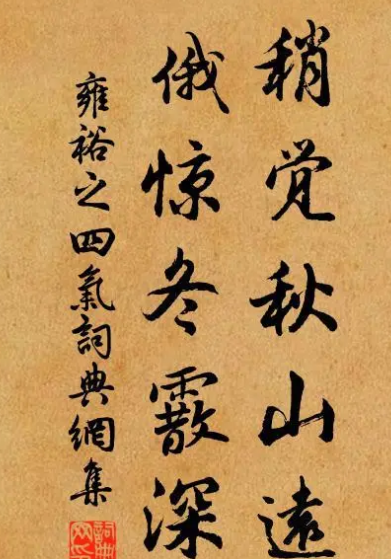 稍觉秋山远
俄惊冬霰深
雍裕之四氣詞典網集